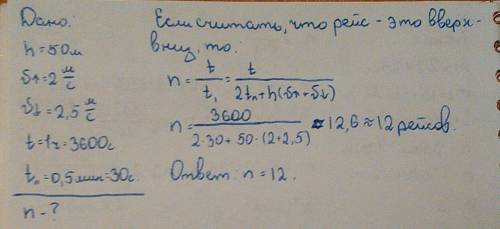 Дано:
h = 50 м
v↑ = 2 м/с
v↓ = 2,5 м/с
t = 1ч = 3600с
tₙ = 0,5 мин = 30с.
n - ?
Если считать, что рейс - это вверх-
вниз, то:
n = t/t₁ = t/(2tₙ + h(v↑ + v↓)
n = 3600/(2·30 + 50·(2+2,5)) ≈ 12,6 ≈ 12 рейсов.
Ответ n = 12.